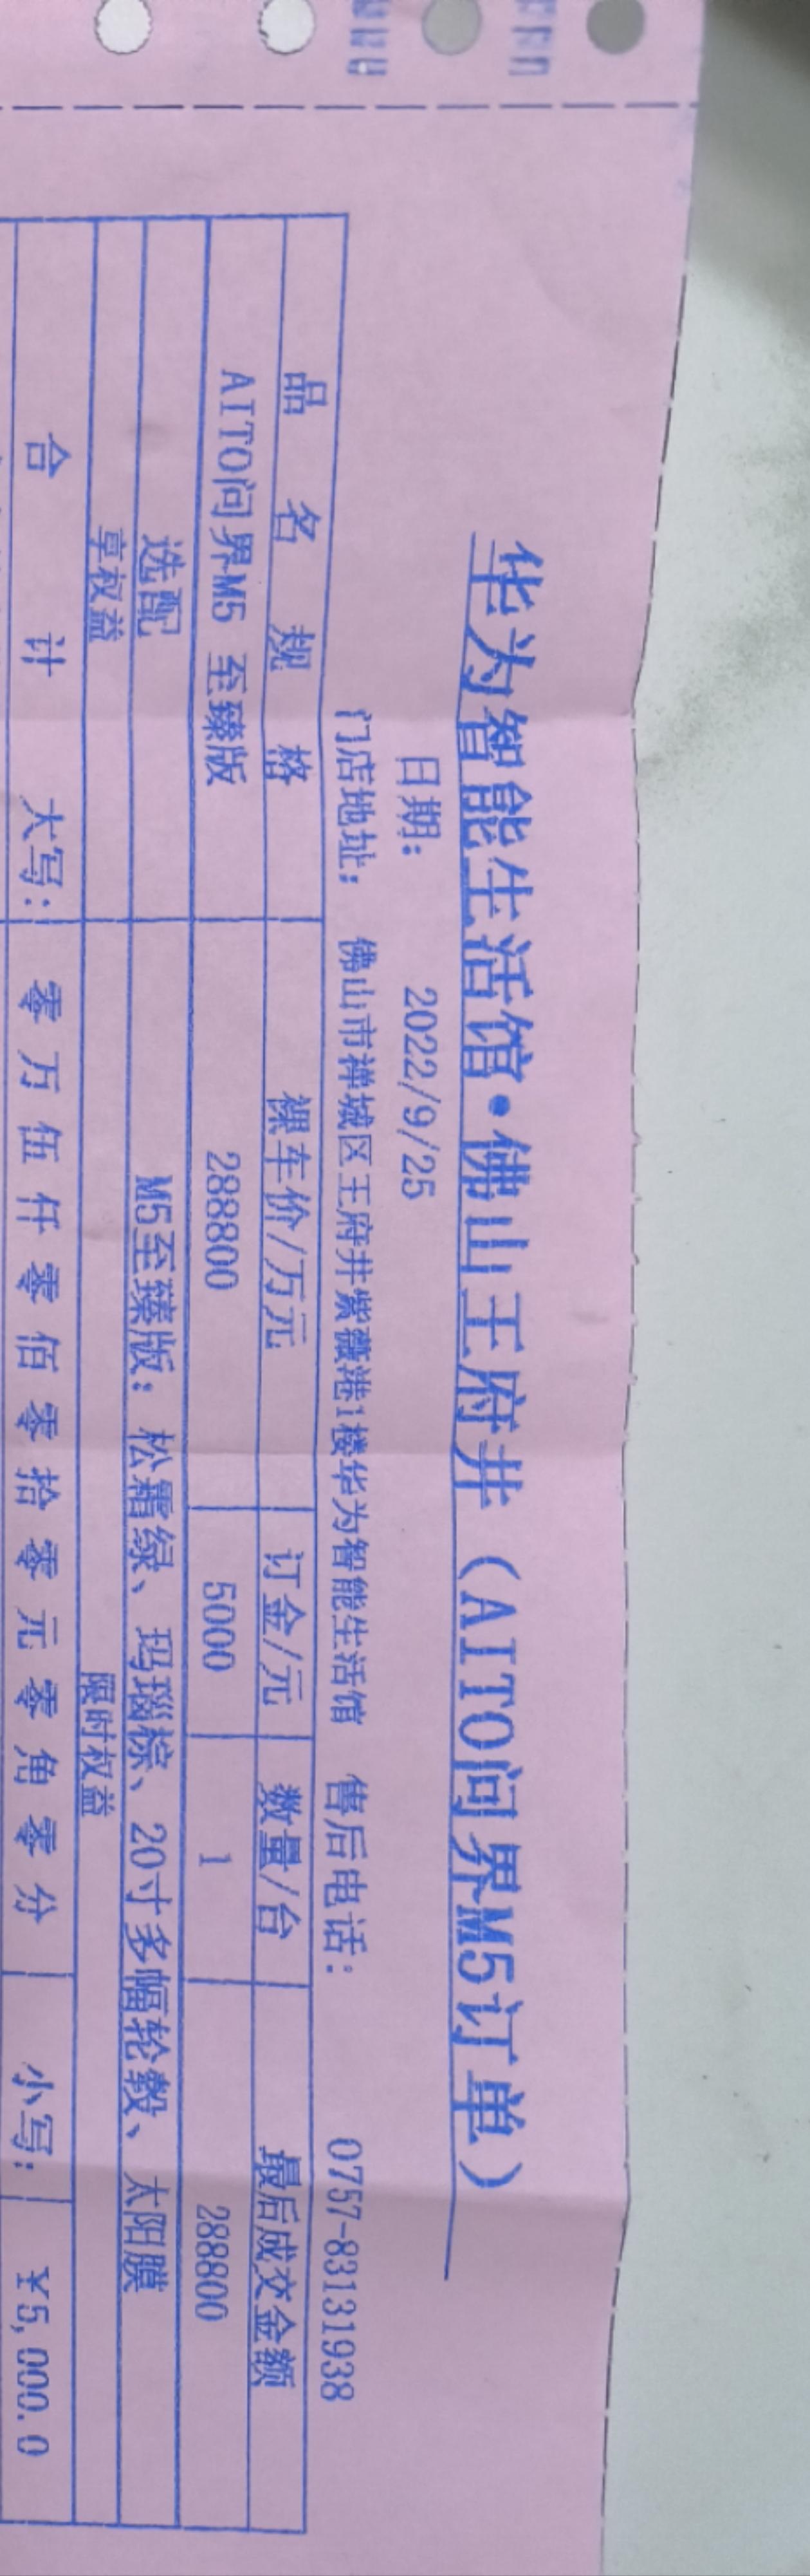 华为智能生活馆•佛山王府井（AITO问界M5订单）
日期： 2022/9/25
门店地址： 佛山市禅城区王府井紫薇港1楼华为智能生活馆 售后电话： 0757-83131938
品 名 规 格 裸车价/万元 订金/元 数量/台 最后成交金额
AITO问界M5 至臻版 288800 5000 1 288800
选配 M5至臻版：松霜绿、玛瑙棕、20寸多幅轮毂、太阳膜
享权益 限时权益
合 计 大写： 零 万 伍 仟 零 佰 零 拾 零 元 零 角 零 分 小写： ￥5,000.0